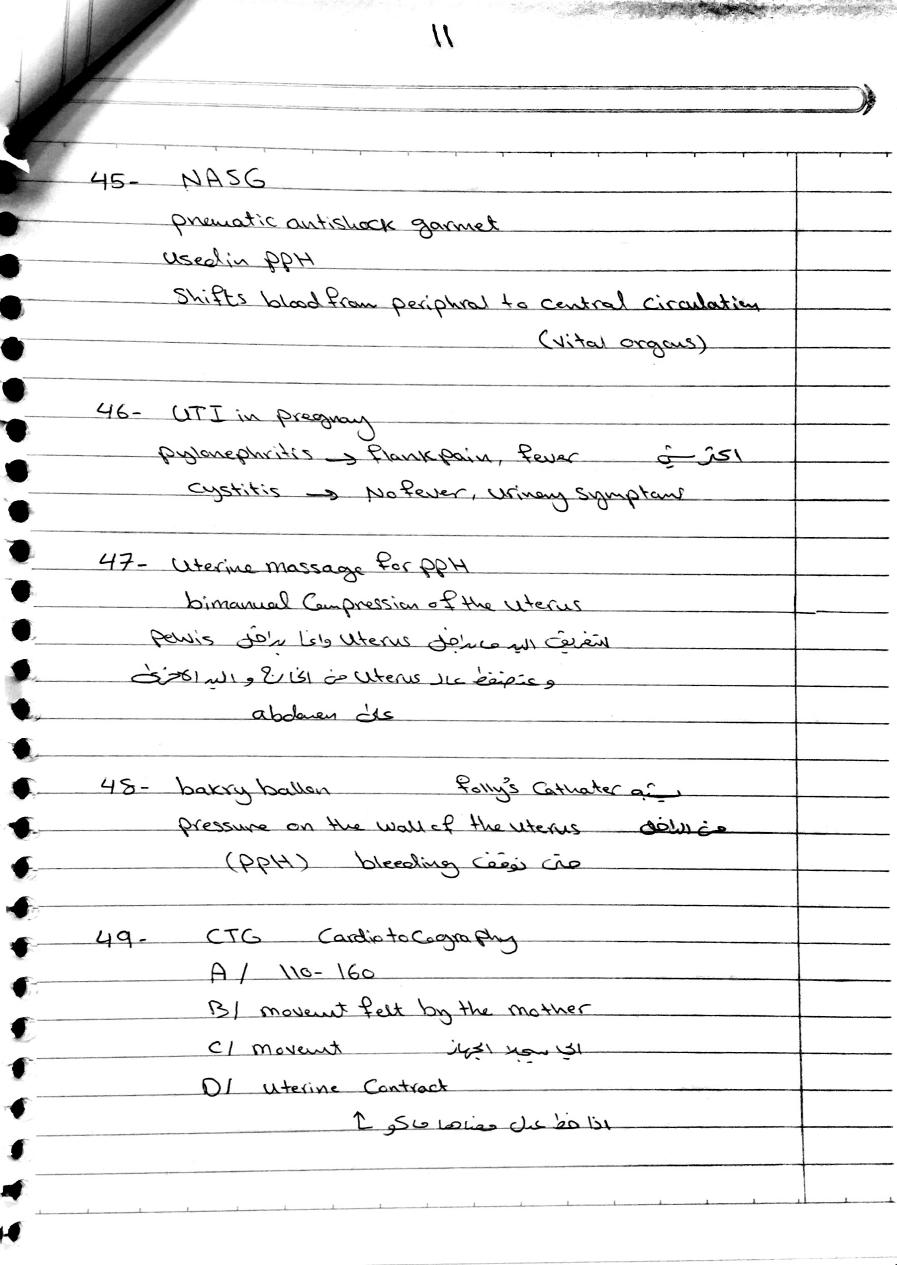 11
45- NASG
pnematic antishock garmet
used in PPH
Shifts blood from periphral to central circulation
(vital organs)
46- UTI in pregnay
pylonephritis → flank pain, fever اكثر شي
Cystitis → No fever, Urinary Symptoms
47- Uterine massage for PPH
bimanual Compression of the Uterus
اليد ما بداخل Uterus وانما بداخل pelvis
و عتضغط عال Uterus من الخارج و اليد الاخرى
على abdomen
48- bakry ballon يشبه folly's Cathater
pressure on the wall of the uterus من الداخل
(PPH) حتى توقف bleeding
49- CTG Cardiotocography
A/ 110-160
B/ movemt felt by the mother
C/ movemt الجهاز
D/ Uterine Contract
اذا خط عدل معناها ماكو ↑